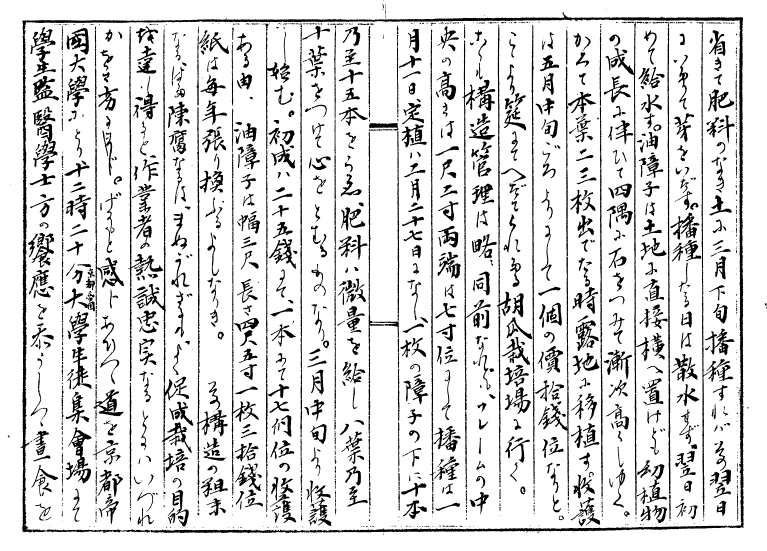 省きて肥料のなき土に三月下旬播種すれバその翌日
にいたりて芽をいだす。播種したる日は散水せず、翌日初
めて給水す。油障子は土地に直接横へ置けども幼植物
の成長に伴ひて四隅に石をつみて漸次高くしゆく。
かくて本葉二三枚出でたる時露地に移植す。收護
は五月中旬ごろよりにして一個の價拾錢位なりと。
こゝより筵にてへだてられたる胡瓜栽培場に行く。
こゝも構造管理は略同前なれども、フレームの中
央の高さは一尺二寸両端は七寸位にして播種は一
月十一日定植ハ二月二十七日になし、一枚の障子の下に十本
乃至十五本をうゑ、肥料ハ微量を給し八葉乃至
十葉をつけて心をとむるものなり。三月中旬より收護
し始む。初成ハ二十五錢にて、一本にて十七個位の收護
ある由、油障子は幅三尺長さ四尺五寸一枚三拾錢位
紙は毎年張り換ふるよしなりき。その構造の粗末
なる陳舊なるはまぬがれざれどもよく促成栽培の目的
を達し得るを作業者の熱誠忠実なるによるハいづれ
かを見る。げにもと感じあひつゝ道を京都帝
國大學にとり十二時二十分大學生徒集會場にて
學生監醫學士方の饗應を忝うしつゝ晝食を